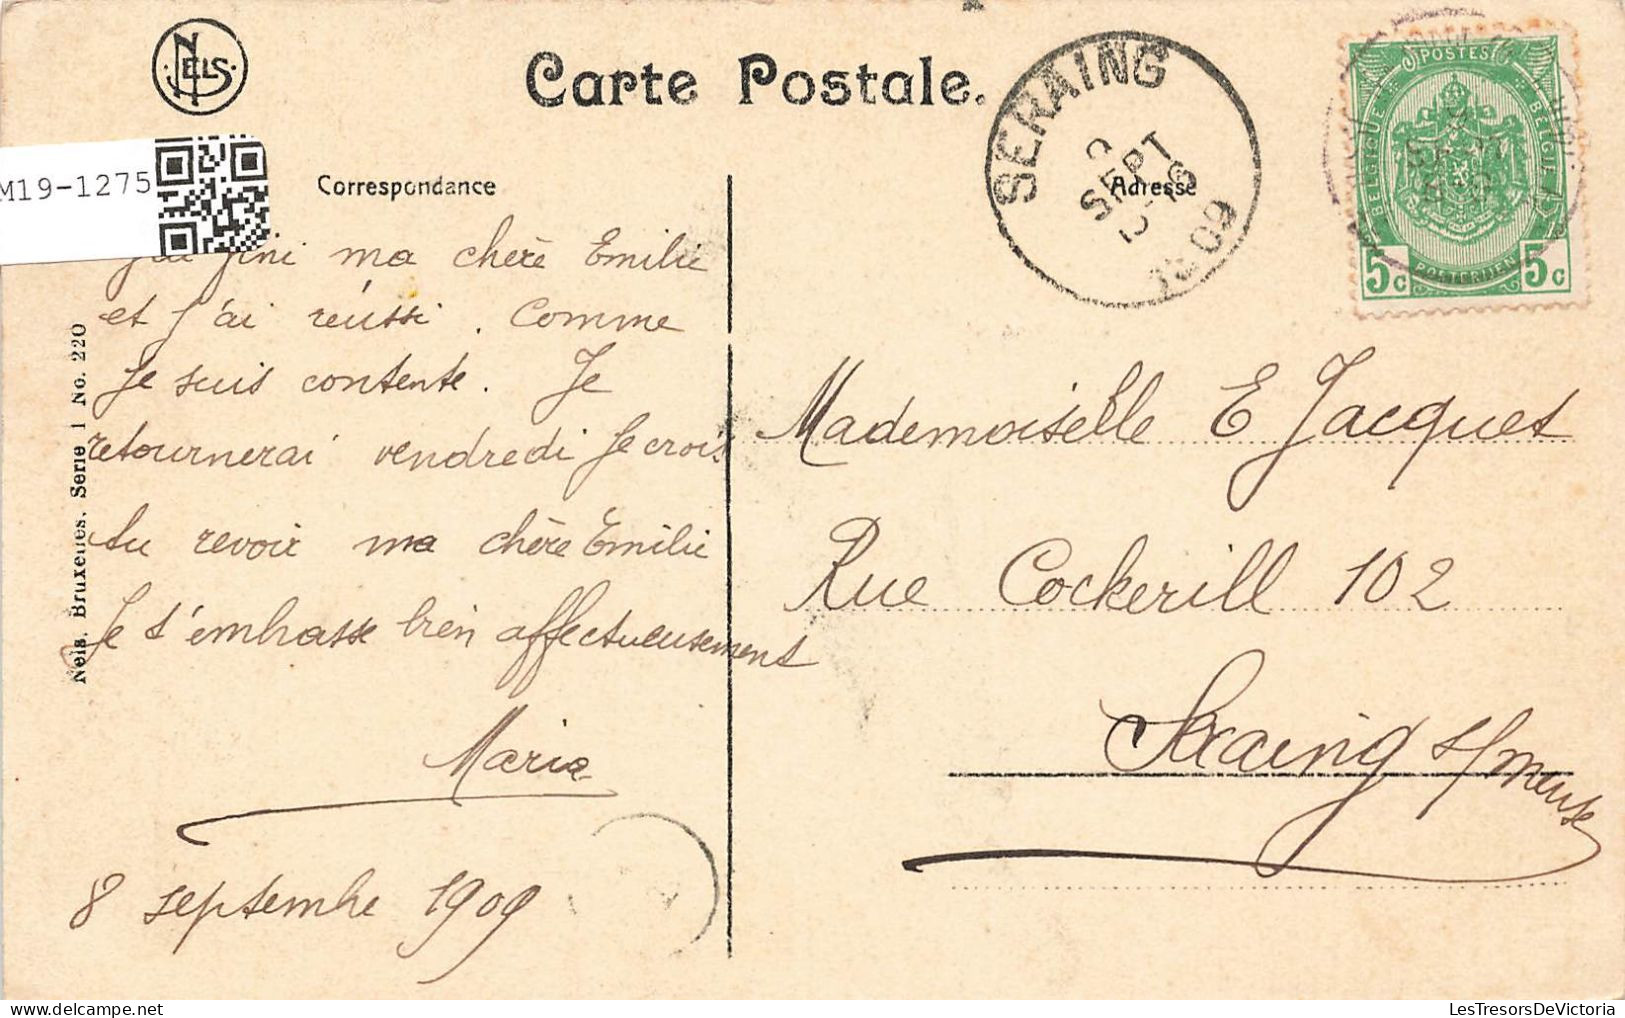 NELS
Carte Postale.
M19-1275
Correspondance
J'ai fini ma chère Emilie
et j'ai réussi. Comme
je suis contente. Je
retournerai vendredi je crois
tu revoir ma chère Emilie
Je t'embrasse bien affectueusement
Marie
8 septembre 1909
Nels, Bruxelles, Serie 1 No. 220
SERAING
SEPT
1909
Adresse
POSTES
BELGIQUE
BELGIË
5c
POSTERIJEN
5c
Mademoiselle E Jacques
Rue Cockerill 102
Seraing s/meuse
LesTresorsDeVictoria